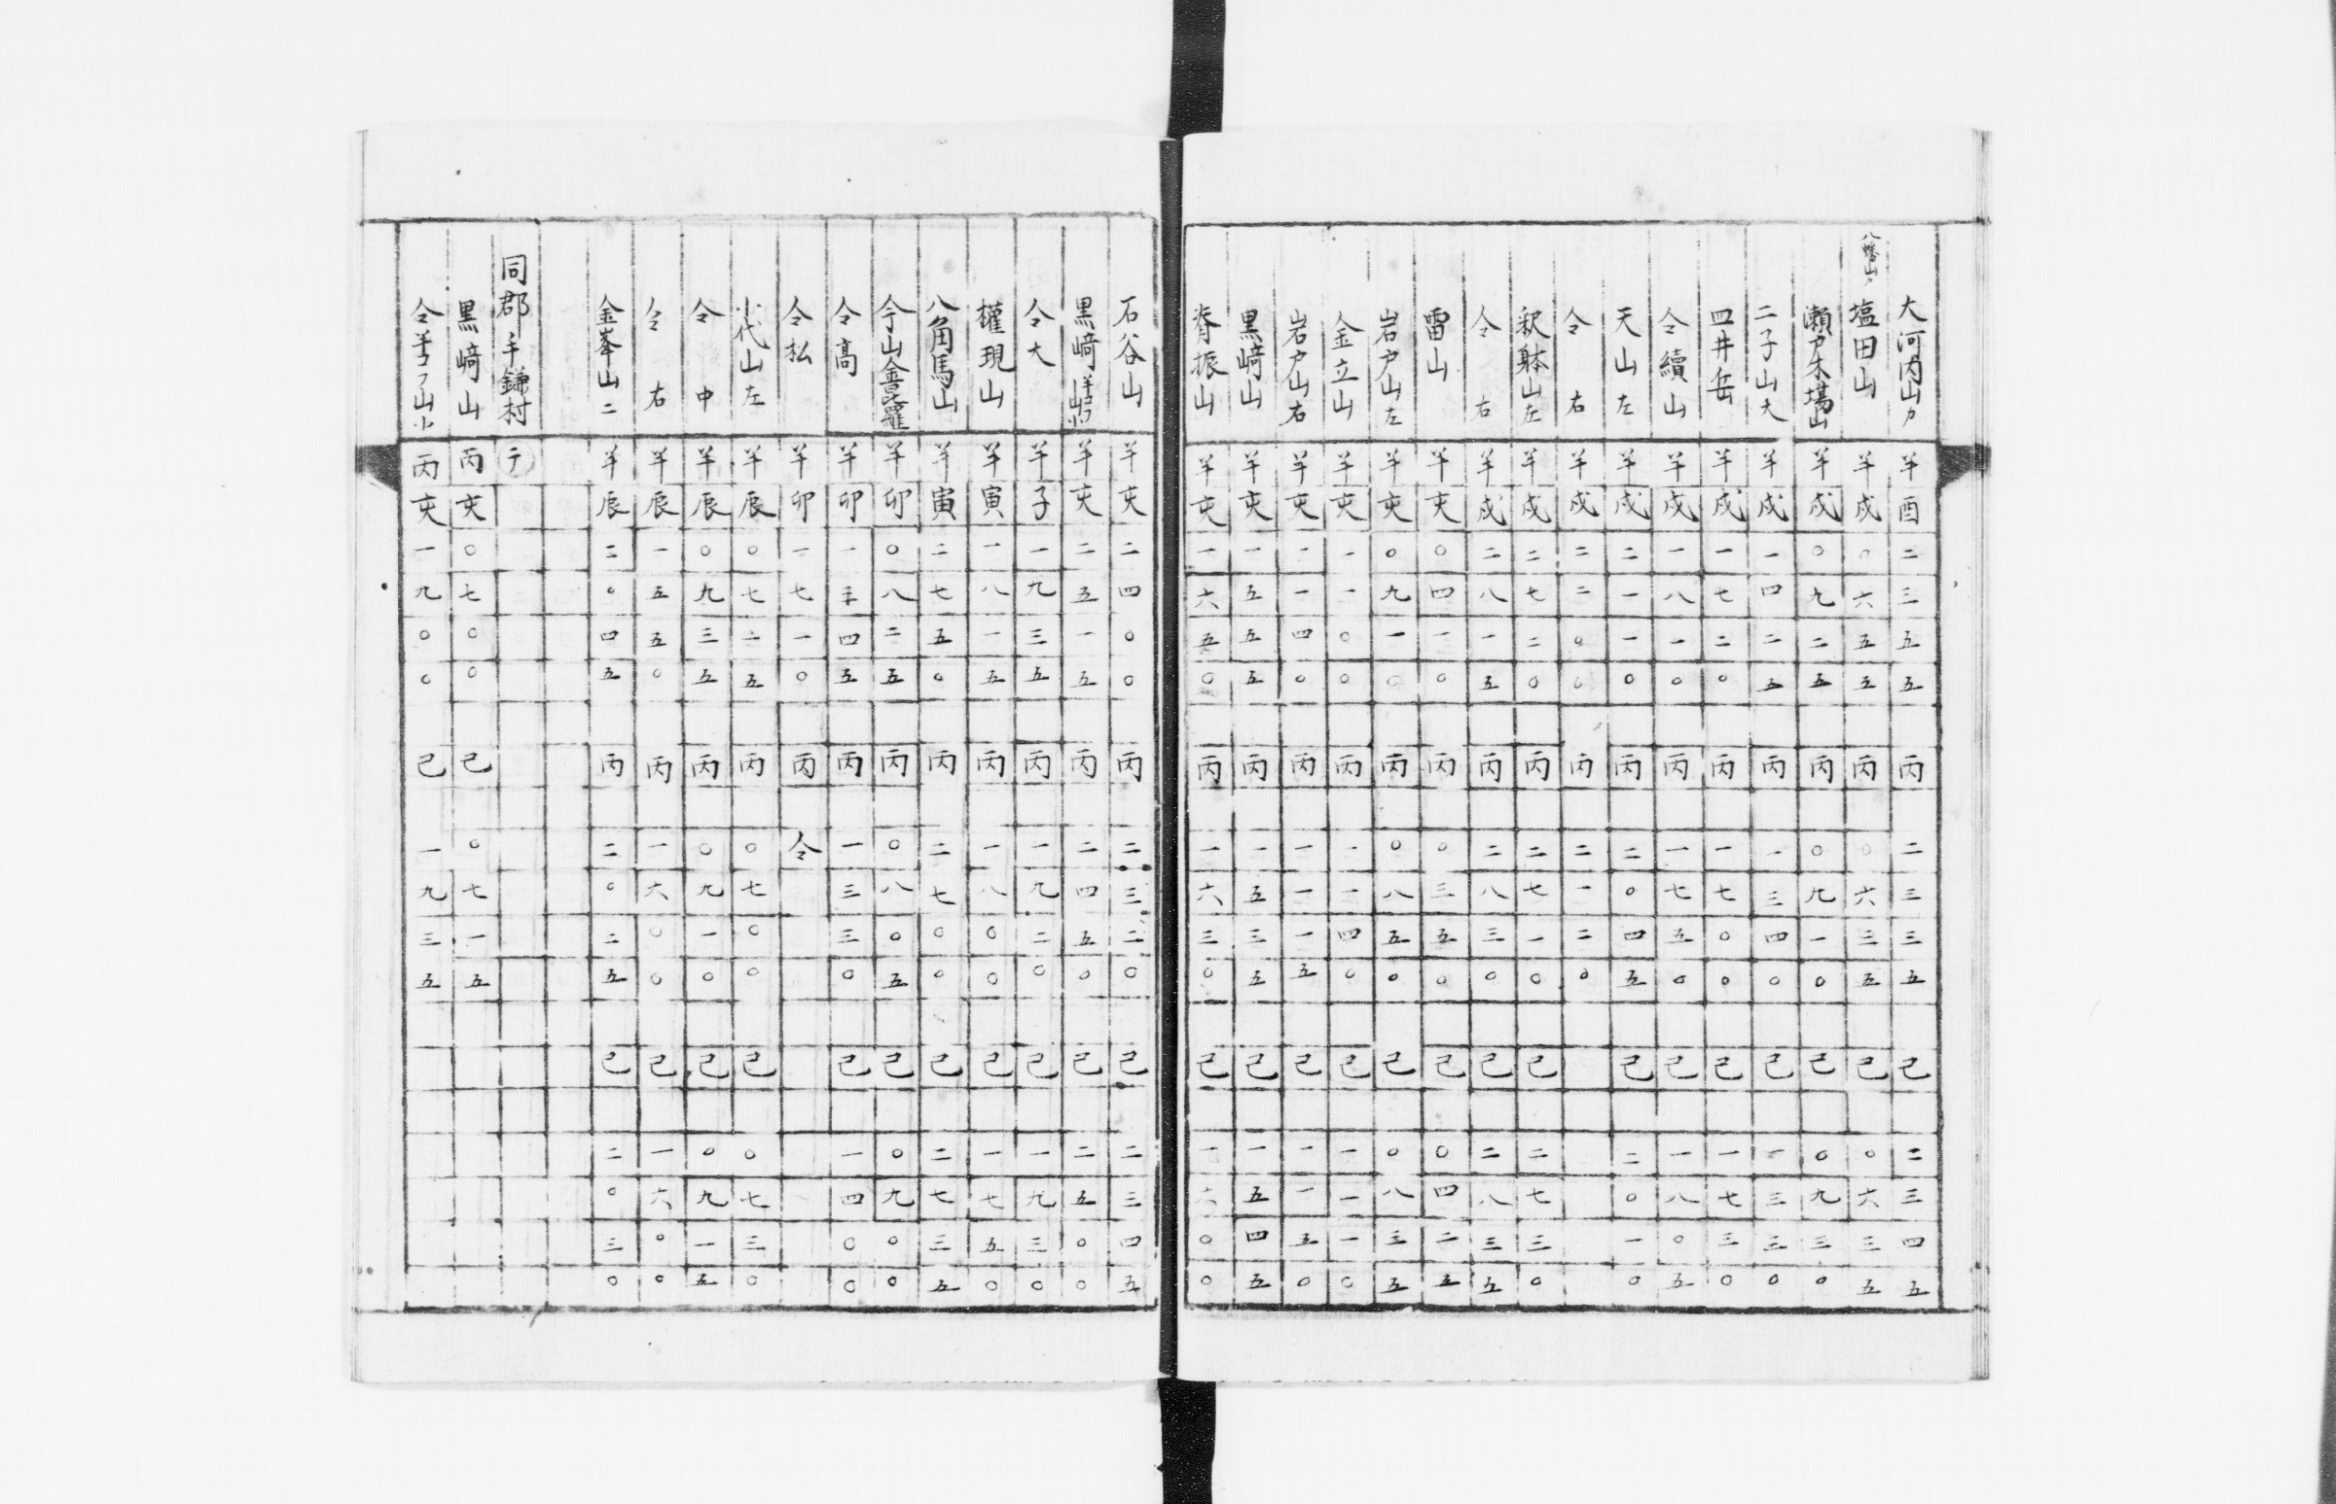 大河内山ノ 羊酉二三五五 丙二三三五 己二三四五
八幡山ノ
塩田山 羊戌〇六五五 丙〇六三五 己〇六三五
瀬戸木場山 羊戌〇九二五 丙〇九一〇 己〇九三〇
二子山大 羊戌一四二五 丙一三四〇 己一三三〇
四井岳 羊戌一七二〇 丙一七〇〇 己一七三〇
仝續山 羊戌一八一〇 丙一七五〇 己一八〇五
天山左 羊戌二一一〇 丙二〇四五 己二〇一〇
仝右 羊戌二二〇〇 丙二一二〇
釈躰山左 羊戌二七二〇 丙二七一〇 己二七三〇
仝右 羊戌二八一五 丙二八三〇 己二八三五
雷山 羊亥〇四一〇 丙〇三五〇 己〇四二五
岩戸山左 羊亥〇九一〇 丙〇八五〇 己〇八三五
金立山 羊亥一一〇〇 丙一一四〇 己一一一〇
岩戸山右 羊亥一一四〇 丙一一一五 己一一五〇
黒﨑山 羊亥一五五五 丙一五三五 己一五四五
脊振山 羊亥一六五〇 丙一六三〇 己一六〇〇
石谷山 羊亥二四〇〇 丙二三二〇 己二三四五
黒﨑 羊亥二五一五 丙二四五〇 己二五〇〇
仝大 羊子一九三五 丙一九二〇 己一九三〇
權現山 羊寅一八一五 丙一八〇〇 己一七五〇
八角馬山 羊寅二七五〇 丙二七〇〇 己二七三五
今山金毘羅 羊卯〇八二五 丙〇八〇五 己〇九〇〇
仝高 羊卯一三四五 丙一三三〇 己一四〇〇
仝松 羊卯一七一〇 丙仝
小代山左 羊辰〇七二五 丙〇七〇〇 己〇七三〇
仝中 羊辰〇九三五 丙〇九一〇 己〇九一五
仝右 羊辰一五五〇 丙一六〇〇 己一六〇〇
金峯山二 羊辰二〇四五 丙二〇二五 己二〇三〇
同郡手鎌村 テ
黒﨑山 丙亥〇七〇〇 己〇七一五
仝羊コフ山小 丙亥一九〇〇 己一九三五